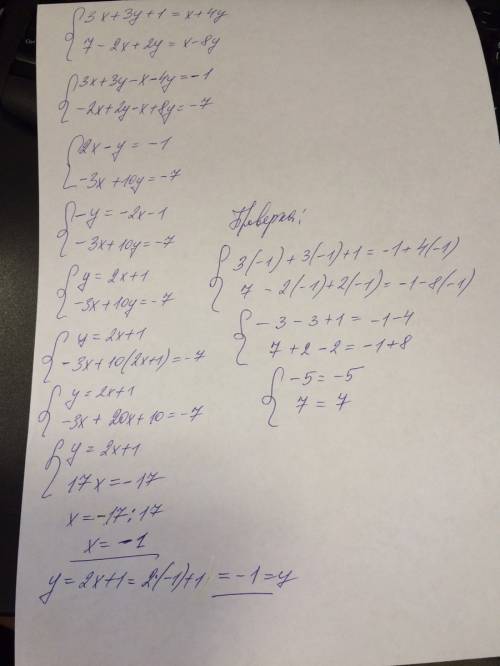 3x+3y+1=x+4y
7-2x+2y=x-8y
3x+3y-x-4y=-1
-2x+2y-x+8y=-7
2x-y=-1
-3x+10y=-7
-y=-2x-1
-3x+10y=-7
y=2x+1
-3x+10y=-7
y=2x+1
-3x+10(2x+1)=-7
y=2x+1
-3x+20x+10=-7
y=2x+1
17x=-17
x=-17:17
x=-1
y=2x+1=2·(-1)+1=-1=y
Проверка:
3(-1)+3(-1)+1=-1+4(-1)
7-2(-1)+2(-1)=-1-8(-1)
-3-3+1=-1-4
7+2-2=-1+8
-5=-5
7=7